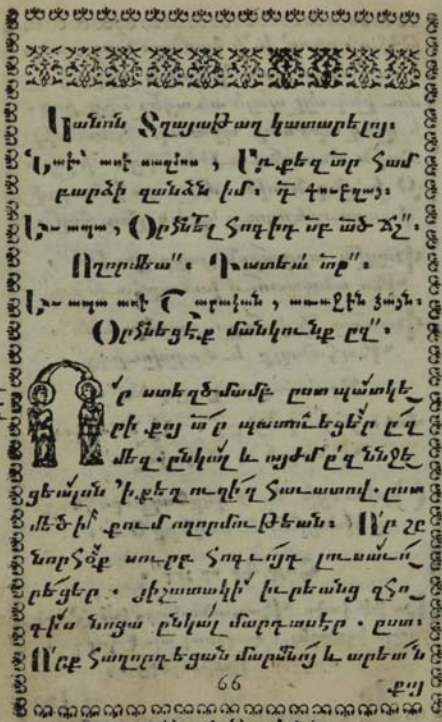 Կանոն Տղայաթաղ կատարելոյ։
Նախ՝ ասէ սաղմոս , Առ քեզ տր համ
բարձի զանձն իմ։ գ̃ փոխղայ։
Եւ ապա , Օրհնել հոգիդ սբ ած ճշ՟։
Ողորմեա՟։ Դատեա՛ տր՟։
Եւ ապա ասէ Շարական , առաջին ձայն։
Օրհնեցէ՛ք մանկունք ըզ՟։
Ո՛ր ստեղծմամբ ըստ պատկե
րի քոյ տր պատուեցեր ըզ
մեզ․ ընկա՛լ և այժմ ըզ ննջե
ցեալսն ՚ի քեզ ուղիղ հաւատով․ ըստ
մեծի քում ողորմութեան։ Ո՛ր շը
նորհօք սուրբ հոգւոյդ լուսաւո
րեցեր ․ յիշատակի՛ իւրեանց զհո
գիս նոցա ընկա՛լ մարդասէր ․ ըստ։
Ո՛րք հաղորդեցան մարմնոյ և արեան
66
քոյ